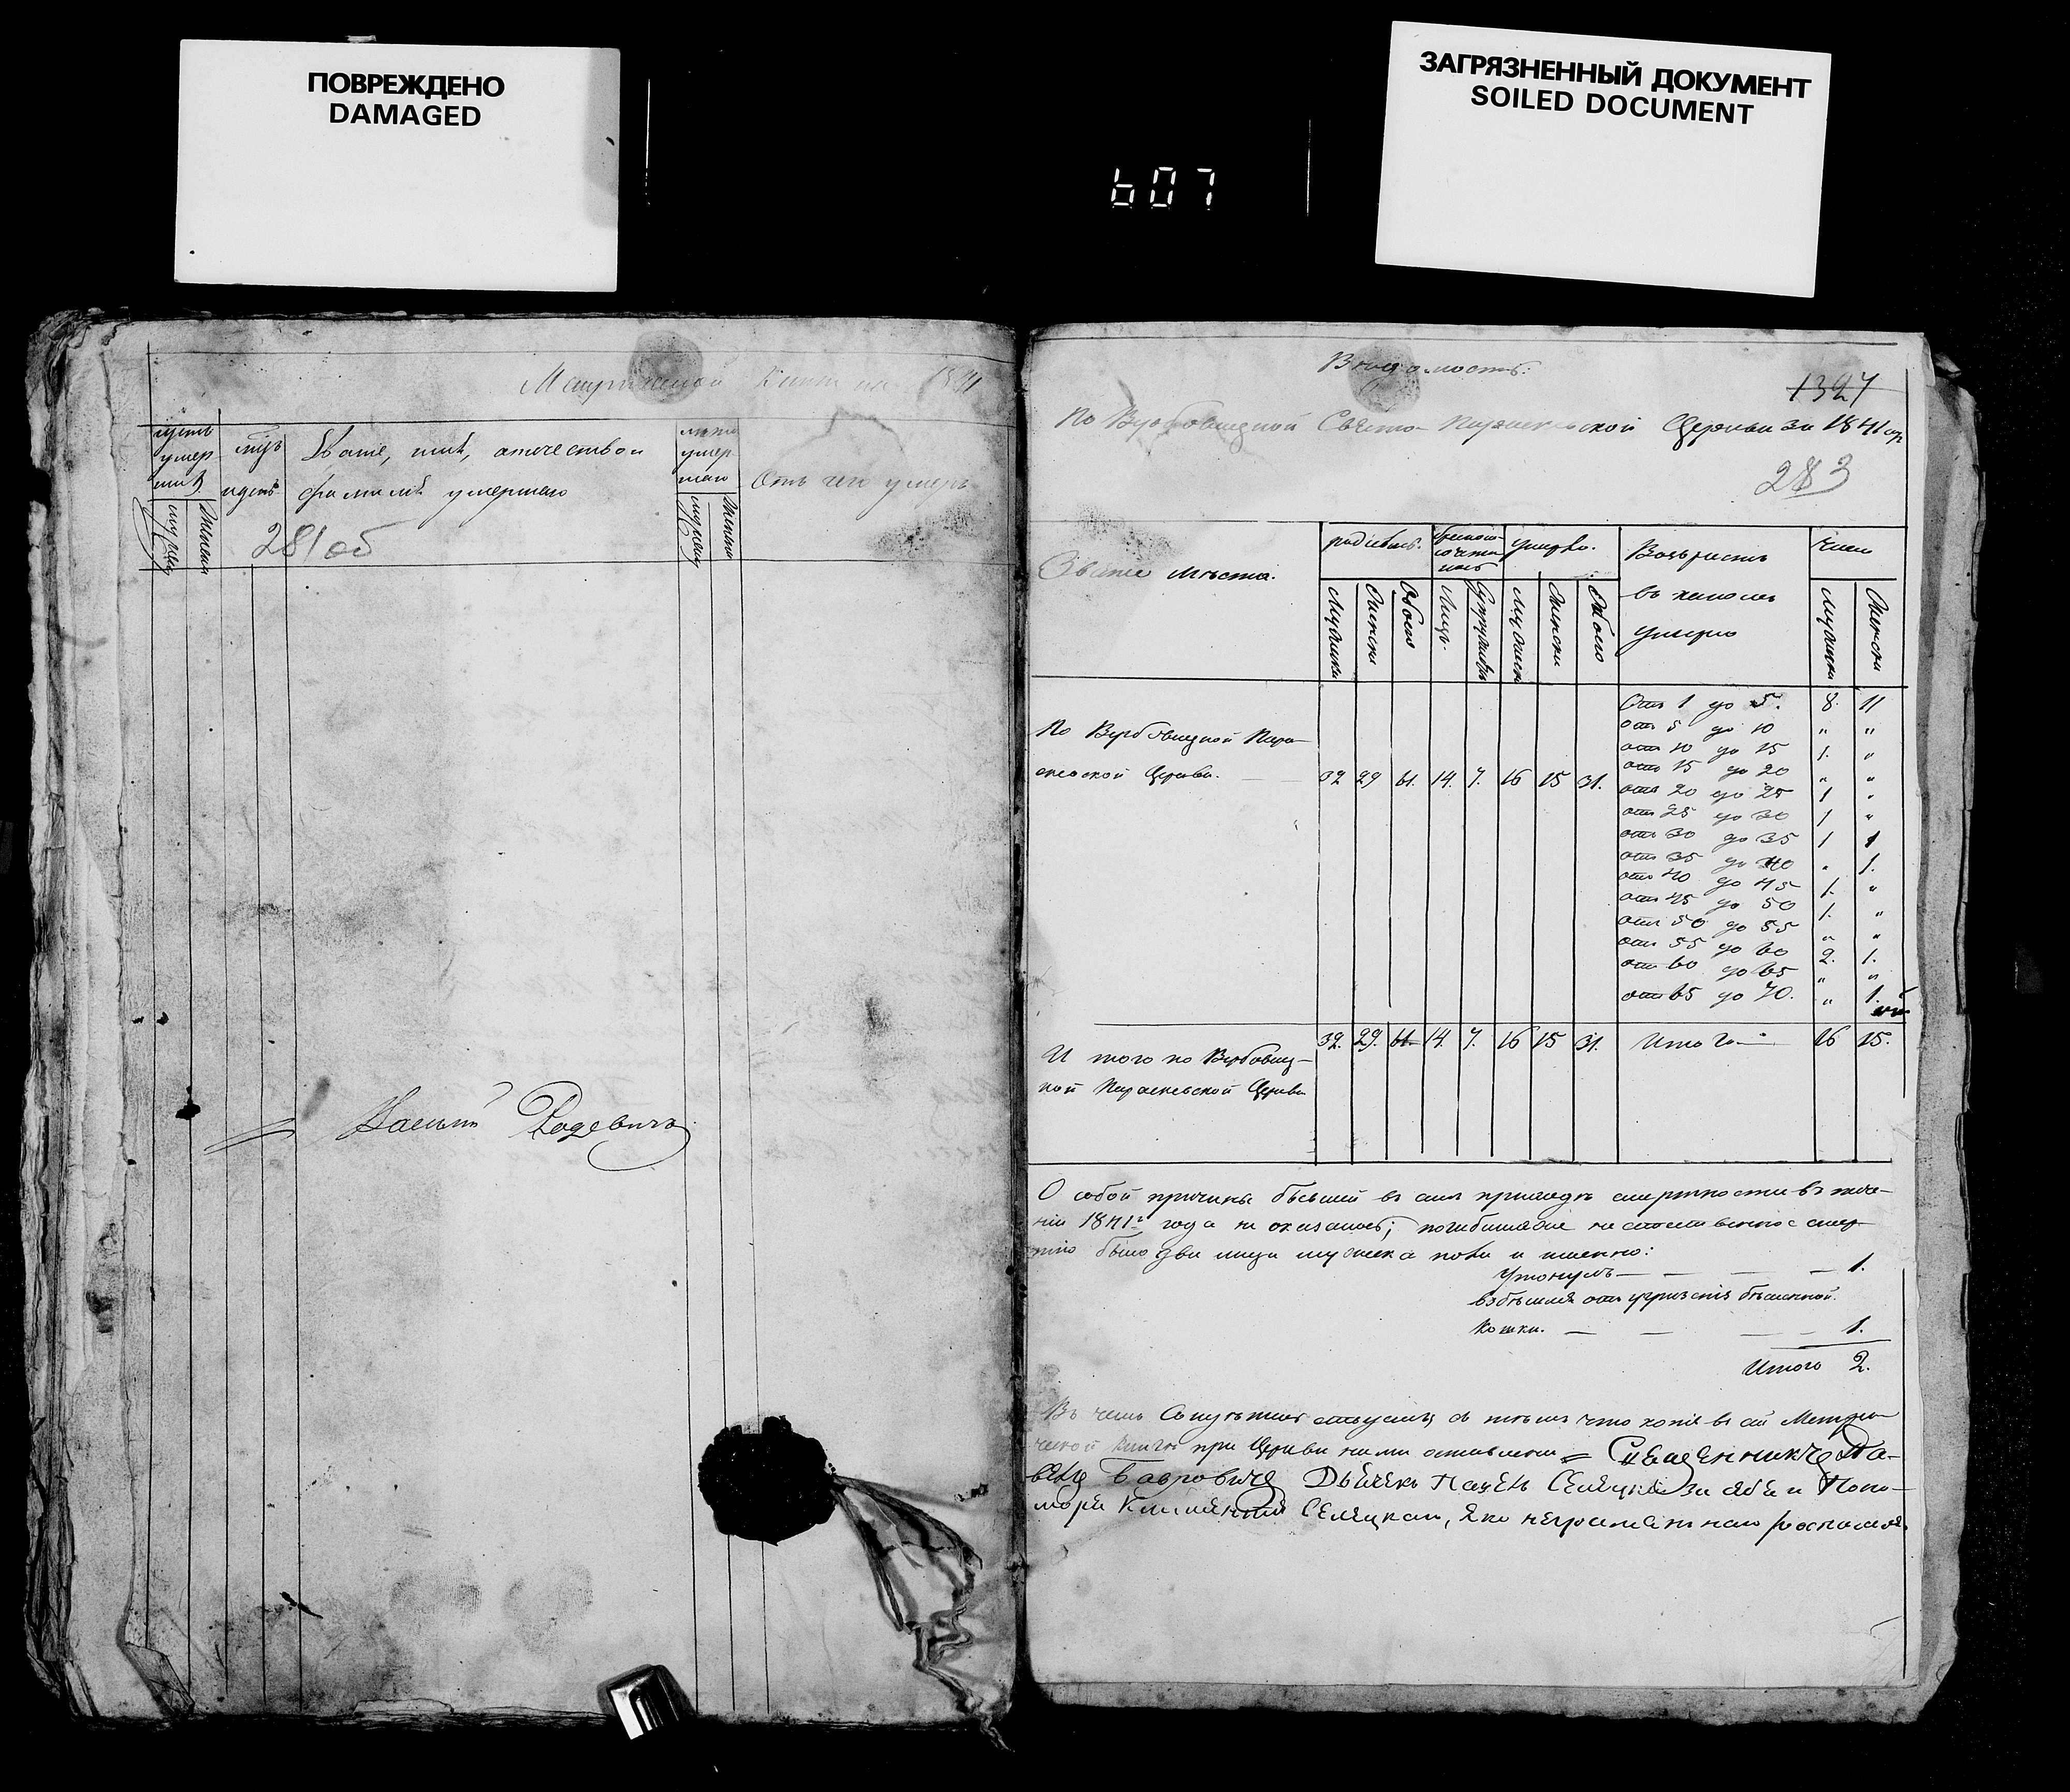 ПОВРЕЖДЕНО
DAMAGED
ЗАГРЯЗНЕННЫЙ ДОКУМЕНТ
SOILED DOCUMENT
607
Метрической Книги на 1841
умер
Званіе, имя, отечество и
фамилія умершаго
Отъ чего умеръ
281 об
Василій Радевичъ
Вѣдомость:
1327
По Вербовецкой Свято-Параскевской Церкви за 1841 гр
283
Званіе мѣста.
родилось.
умерло.
Возрастъ
въ какомъ
умерло
Число
Обоего
Лицъ.
Обоего
По Вербовецкой Пара-
скевской Церкви. 32 29 61. 14. 7. 16 15 31.
Отъ 1 до 5. 8. 11
отъ 5 до 10 " "
отъ 10 до 15 1. "
отъ 15 до 20 " "
отъ 20 до 25 1 "
отъ 25 до 30 1 "
отъ 30 до 35 1 1
отъ 35 до 40 " 1.
отъ 40 до 45 1. "
отъ 45 до 50 1. "
отъ 50 до 55 " "
отъ 55 до 60 2. 1.
отъ 60 до 65 " "
отъ 65 до 70. " 1.
И того по Вербовец-
кой Параскевской Церкви
32. 29. 61. 14. 7. 16 15 31. Итого 16 15.
О собой причины бывшей въ семъ приходѣ смертности въ тече-
ніи 1841г года не оказалось; погибшихъ не естественною смер-
тію было два лица мужеска пола и именно:
Утонулъ — — — — 1.
взбѣсился отъ угрызенія бѣшенной
Кошки. — — — — 1.
Итого 2.
Въ чемъ съ тѣмъ что копія въ сей Метри-
ческой Книги при Церкви нами оставлена = Священникъ Па-
велъ Дьячекъ Селецкій за себя и Поно-
маря Селецкаго, яко неграмотнаго росписался.